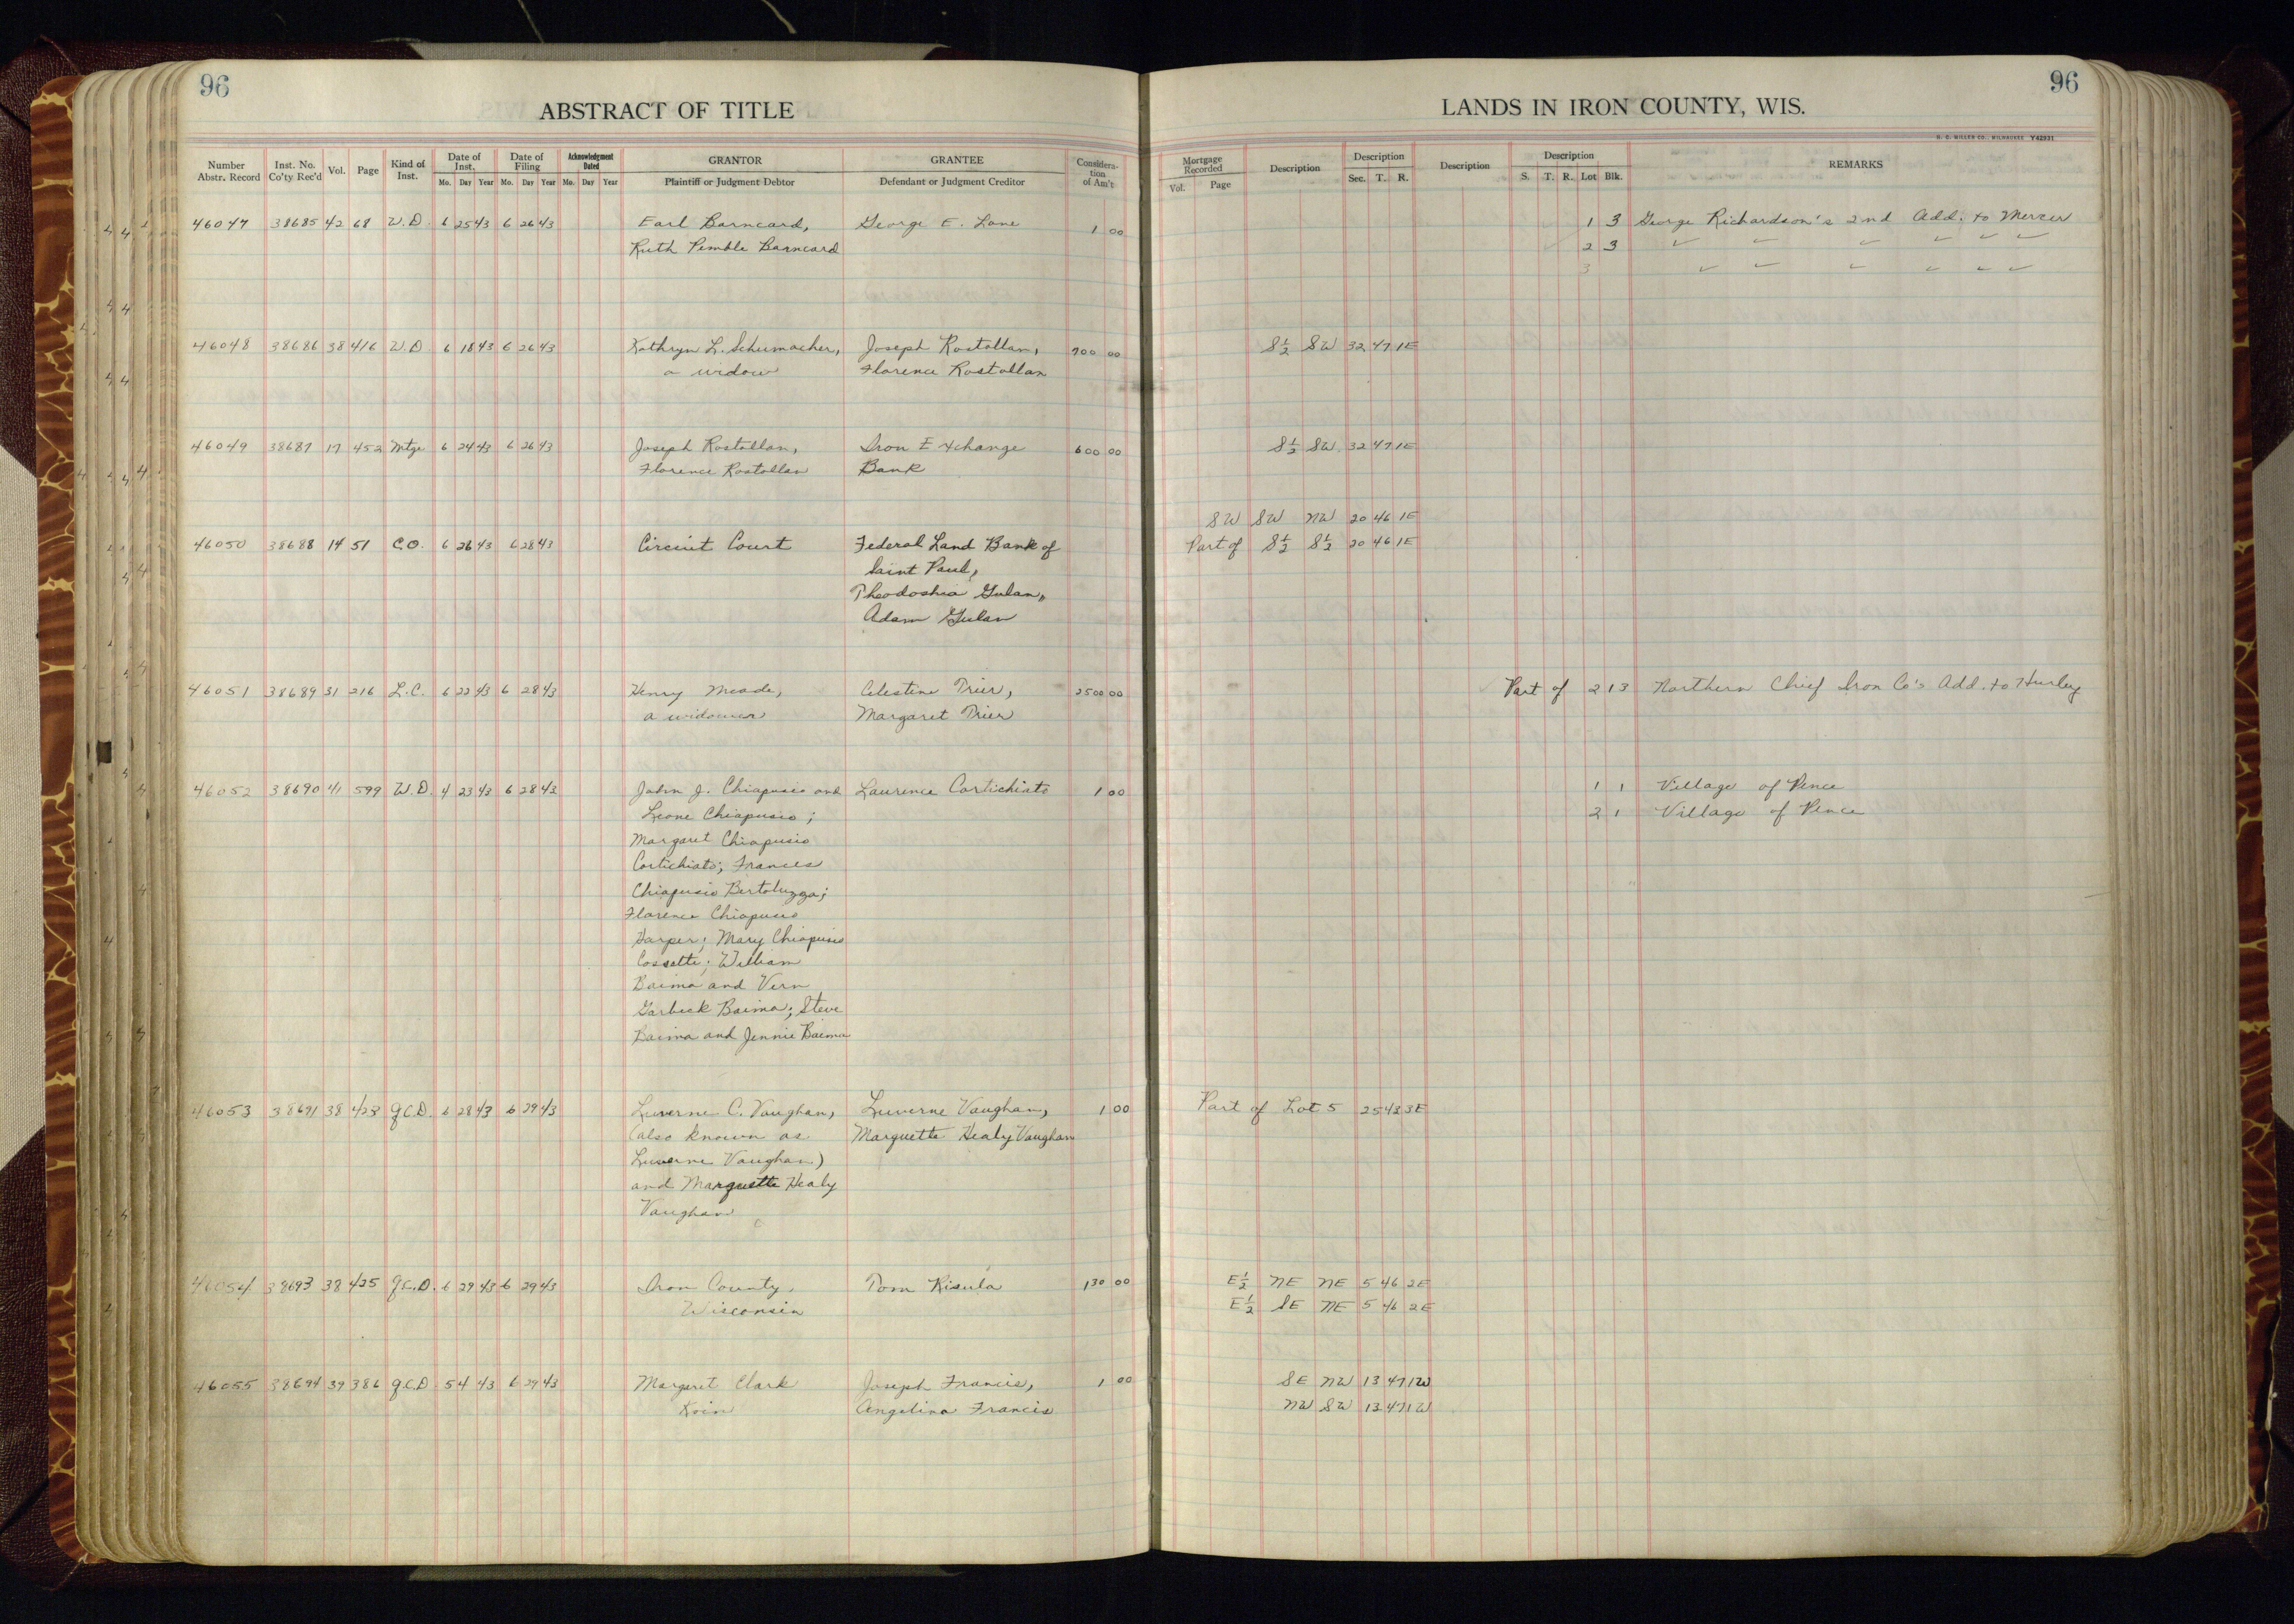 96
96
ABSTRACT OF TITLE
LANDS IN IRON COUNTY, WIS.
H. C. MILLER CO., MILWAUKEE Y42931
Number Abstr. Record Inst. No. Co'ty Rec'd Vol. Page Kind of Inst. Date of Inst. Mo. Day Year Date of Filing Mo. Day Year Acknowledgment Dated Mo. Day Year GRANTOR Plaintiff or Judgment Debtor GRANTEE Defendant or Judgment Creditor Consideration of Am't Mortgage Recorded Vol. Page Description Description Sec. T. R. Description Description S. T. R. Lot Blk. REMARKS
46047 38685 42 68 W.D. 6 25 43 6 26 43 Earl Barncard, George E. Lane 1 00 1 3 George Richardson's 2nd Add. to Mercer
Ruth Pemble Barncard 2 3 ✓ ✓ ✓ ✓ ✓ ✓
3 ✓ ✓ ✓ ✓ ✓ ✓
46048 38686 38 416 W.D. 6 18 43 6 26 43 Kathryn L. Schumacher, Joseph Rostollan, 900 00 S½ SW 32 47 1E
a widow Florence Rostollan
46049 38687 17 452 Mtge 6 24 43 6 26 43 Joseph Rostollan, Iron Exchange 600 00 S½ SW 32 47 1E
Florence Rostollan Bank
SW SW NW 20 46 1E
46050 38688 14 51 C.O. 6 26 43 6 28 43 Circuit Court Federal Land Bank of Part of S½ S½ 20 46 1E
Saint Paul,
Theodoshia Gulan,
Adam Gulan
46051 38689 31 216 L.C. 6 22 43 6 28 43 Henry Meade, Celestine Trier, 2500 00 Part of 2 13 Northern Chief Iron Co's Add. to Hurley
a widower Margaret Trier
46052 38690 41 599 W.D. 4 23 43 6 28 43 John J. Chiapusio and Laurence Cortichiato 1 00 1 1 Village of Pence
Leone Chiapusio; 2 1 Village of Pence
Margaret Chiapusio
Cortichiato; Frances
Chiapusio Bertoluzza;
Florence Chiapusio
Harper; Mary Chiapusio
Cossette; William
Baima and Vern
Garbeck Baima; Steve
Baima and Jennie Baima
46053 38691 38 423 Q.C.D. 6 28 43 6 29 43 Luverne C. Vaughan, Luverne Vaughan, 1 00 Part of Lot 5 25 43 3E
(also known as Marguette Healy Vaughan
Luverne Vaughan)
and Marguette Healy
Vaughan
46054 38693 38 425 Q.C.D. 6 29 43 6 29 43 Iron County, Tom Risula 130 00 E½ NE NE 5 46 2E
Wisconsin E½ SE NE 5 46 2E
46055 38694 39 386 Q.C.D. 5 4 43 6 29 43 Margaret Clark Joseph Francis, 1 00 SE NW 13 47 1W
Koin Angelina Francis NW SW 13 47 1W